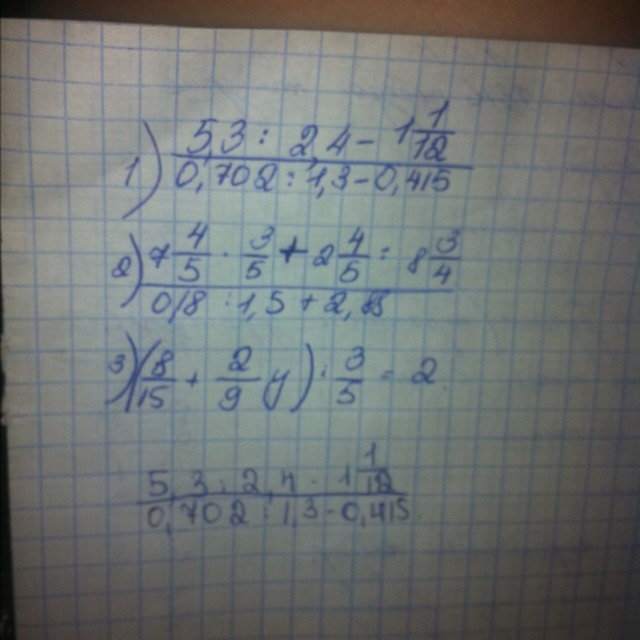 1) 5,3 : 2,4 - 1 1/12
0,702 : 1,3 - 0,415
2) 4/5 · 3/5 + 2 4/5 : 8 3/4
0,18 : 1,5 + 2,
3) (8/15 + 2/9 y) : 3/5 = 2
5,3 : 2,4 - 1 1/12
0,702 : 1,3 - 0,415